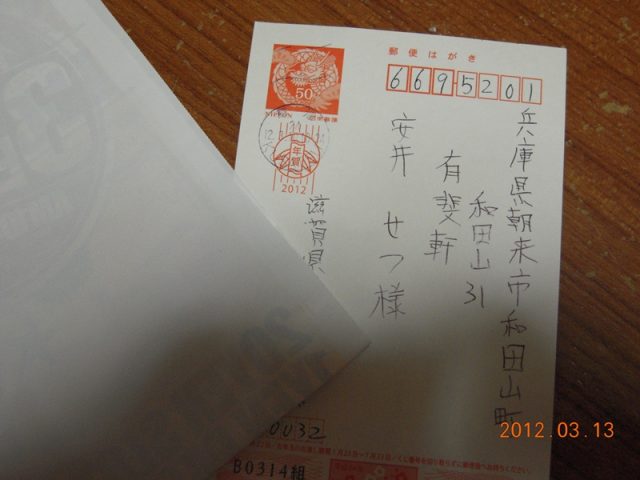 郵便はがき
6695201
50
NIPPON
年賀
2012
兵庫県朝来市和田山町
和田山31
有斐軒
安井 せつ様
滋賀県
0032
B0314組
2012.03.13